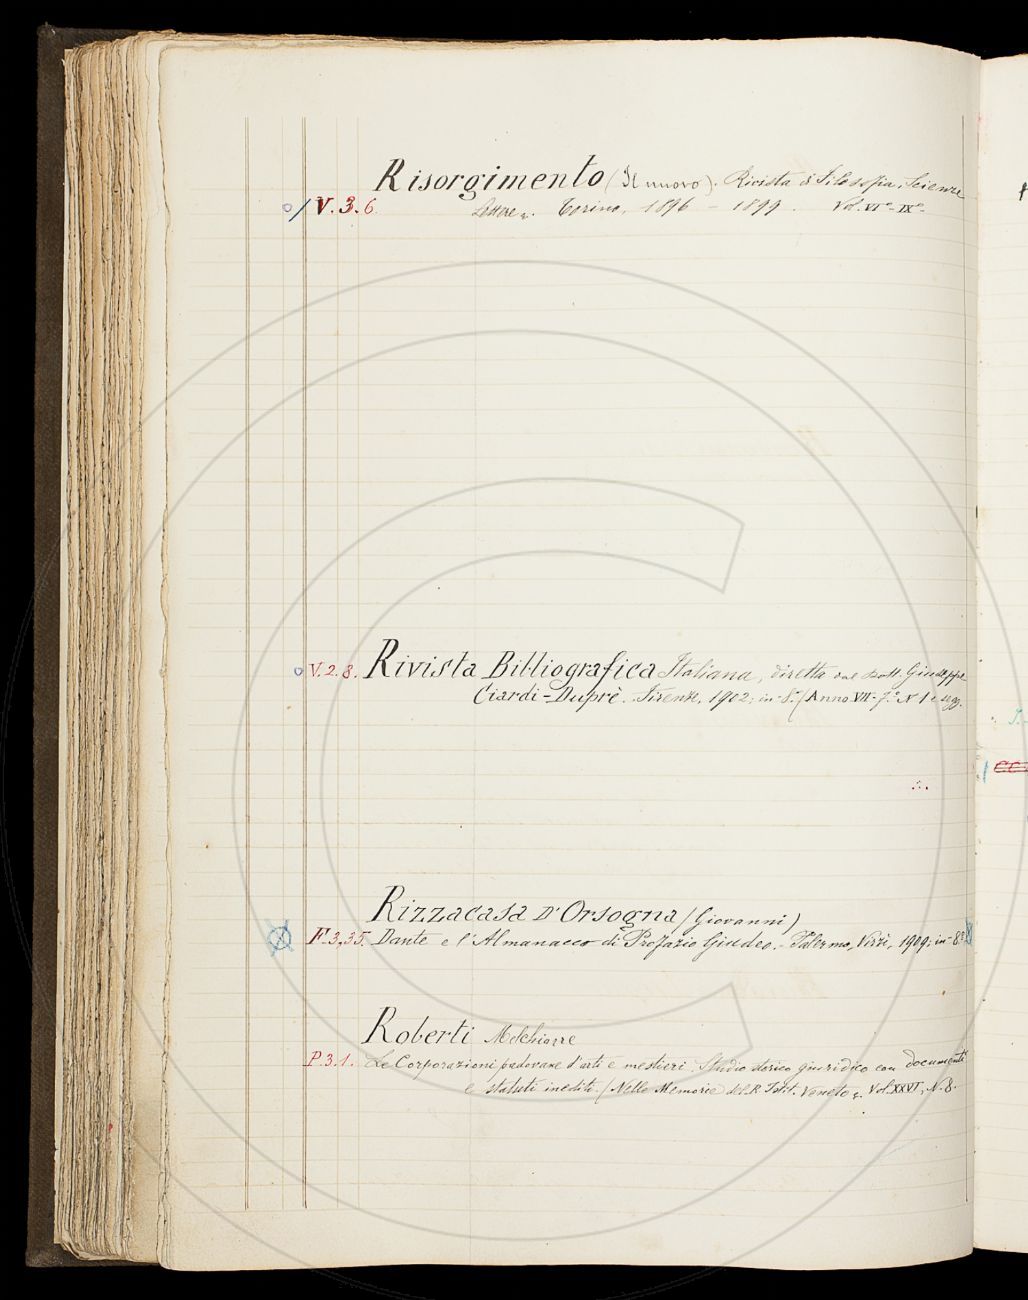 Risorgimento (Il nuovo). Rivista di Filosofia, Scienze
V. 3. 6. Lettere &. Torino, 1896 - 1899. Vol. VI°- IX°-
V. 2. 8. Rivista Bibliografica Italiana, diretta dal Dott. Giuseppe
Ciardi-Duprè. Firenze, 1902; in-8.° (Anno VII- 7.° N 1 e segg.
Rizzacasa D'Orsogna (Giovanni)
F. 3, 35. Dante e l'Almanacco di Profazio Giudeo. - Palermo, Virzì, 1909; in-8.°
Roberti Melchiorre
P. 3. 1. Le Corporazioni padovane d'arti e mestieri. Studio storico giuridico con documenti
e statuti inediti. (Nelle Memorie del R. Istit. Veneto &. Vol. XXVI, N. 8.